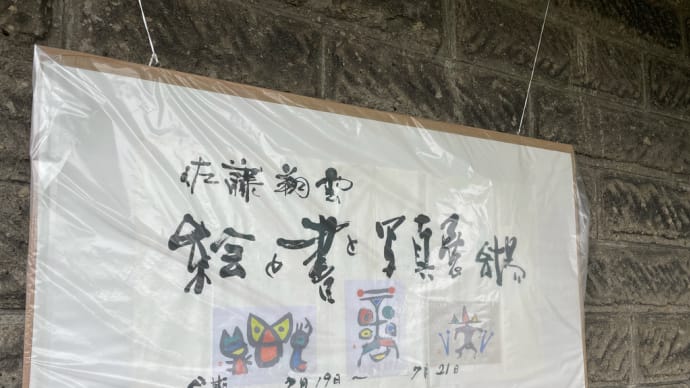 佐藤翔雲
絵と書と写真展
7月19日〜7月21日